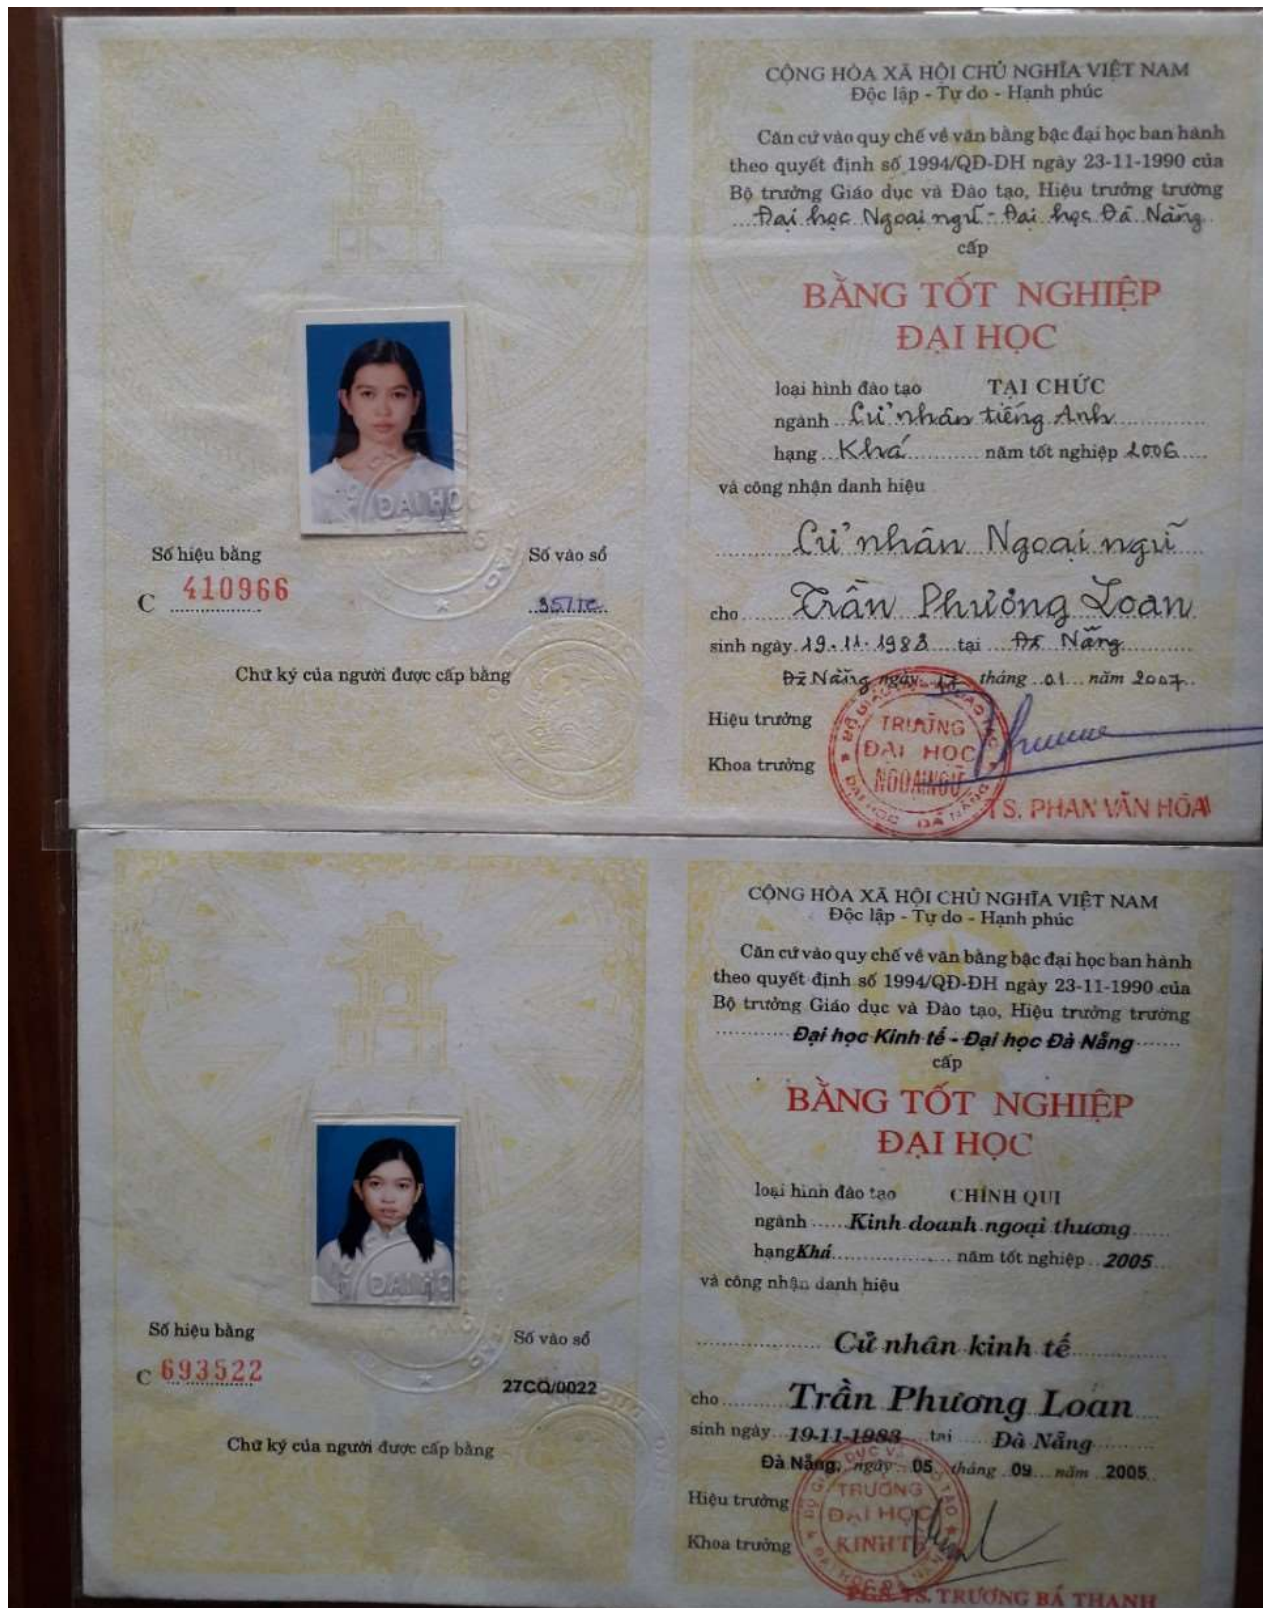 CỘNG HÒA XÃ HỘI CHỦ NGHĨA VIỆT NAM
Độc lập - Tự do - Hạnh phúc
Căn cứ vào quy chế về văn bằng bậc đại học ban hành
theo quyết định số 1994/QĐ-ĐH ngày 23-11-1990 của
Bộ trưởng Giáo dục và Đào tạo, Hiệu trưởng trường
Đại học Ngoại ngữ - Đại học Đà Nẵng
cấp
BẰNG TỐT NGHIỆP
ĐẠI HỌC
loại hình đào tạo TẠI CHỨC
ngành Cử nhân tiếng Anh
hạng Khá năm tốt nghiệp 2006
và công nhận danh hiệu
Cử nhân Ngoại ngữ
cho Trần Phương Loan
sinh ngày 19.11.1983 tại Đà Nẵng
Đà Nẵng ngày 17 tháng 01 năm 2007
Hiệu trưởng
Khoa trưởng
TRƯỜNG
ĐẠI HỌC
NGOẠI NGỮ
ĐẠI HỌC ĐÀ NẴNG
TS. PHAN VĂN HÒA
ĐẠI HỌC
Số hiệu bằng
C 410966
Số vào sổ
35/TC
Chữ ký của người được cấp bằng
CỘNG HÒA XÃ HỘI CHỦ NGHĨA VIỆT NAM
Độc lập - Tự do - Hạnh phúc
Căn cứ vào quy chế về văn bằng bậc đại học ban hành
theo quyết định số 1994/QĐ-ĐH ngày 23-11-1990 của
Bộ trưởng Giáo dục và Đào tạo, Hiệu trưởng trường
Đại học Kinh tế - Đại học Đà Nẵng
cấp
BẰNG TỐT NGHIỆP
ĐẠI HỌC
loại hình đào tạo CHÍNH QUI
ngành Kinh doanh ngoại thương
hạng Khá năm tốt nghiệp 2005
và công nhận danh hiệu
Cử nhân kinh tế
cho Trần Phương Loan
sinh ngày 19-11-1983 tại Đà Nẵng
Đà Nẵng, ngày 05 tháng 09 năm 2005
Hiệu trưởng
Khoa trưởng
TRƯỜNG
ĐẠI HỌC
KINH TẾ
ĐẠI HỌC ĐÀ NẴNG
PGS. TS. TRƯƠNG BÁ THANH
ĐẠI HỌC
Số hiệu bằng
C 693522
Số vào sổ
27CQ/0022
Chữ ký của người được cấp bằng